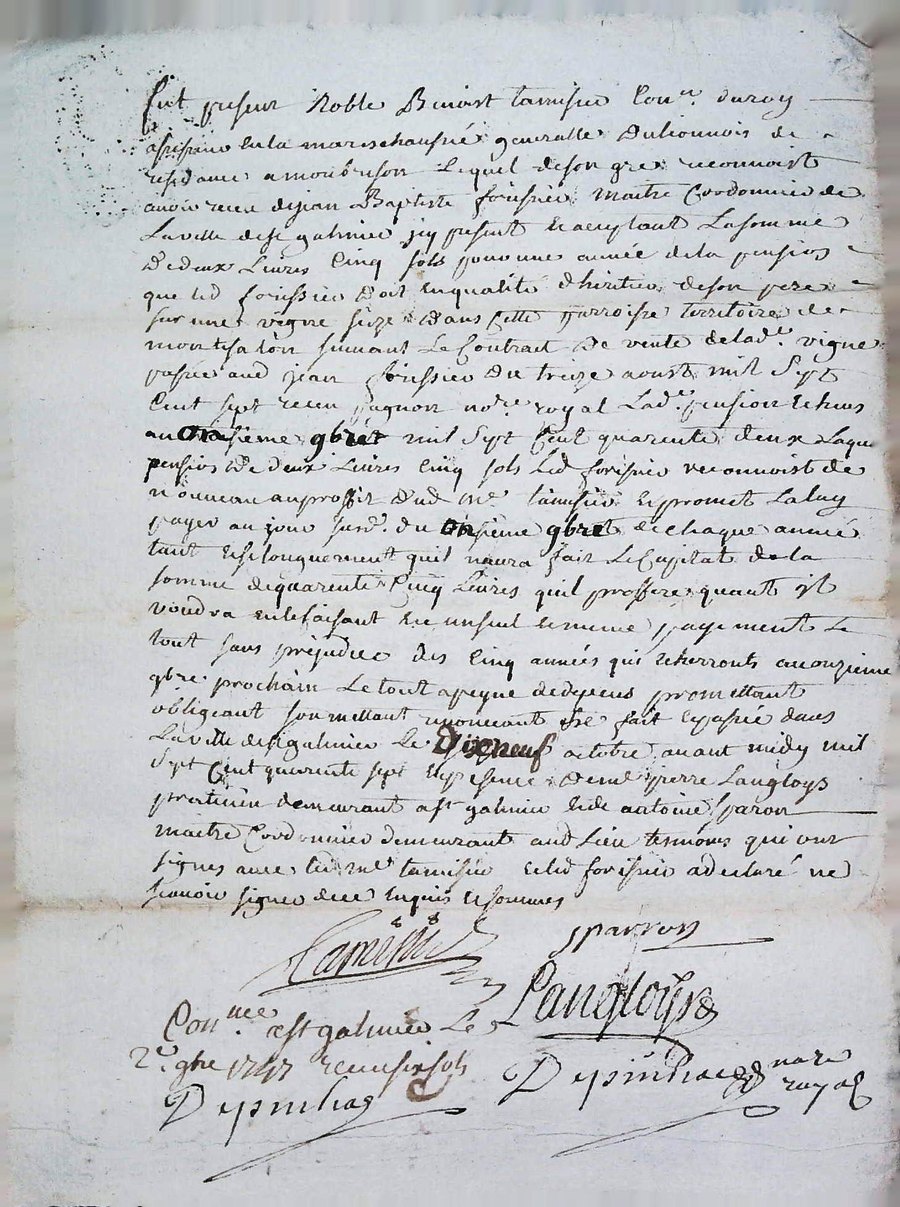 fut present Noble Benoist tamisier Con.er du roy
assesseur en la mareschaussée generalle du lionnois de
residance a montbrison Lequel de son gre reconnoist
avoir receu de jean Baptiste forissier maitre Cordonnier de
La ville de st galmier icy present et aceptant La somme
de deux Livres Cinq sols pour une année de la pension
que led forissier doit en qualité d'heritier de son pere
sur une vigne size dans cette parroisse territoire de
montsalon suivant Le Contrat de vente de lad.e vigne
passée aud jean forissier du treize aoust mil Sept
Cent sept receu pagnon no.re royal Lad.e pension echeue
au onsieme gbre mil Sept Cent quarente deux Laque
pension de deux Livres Cinq sols Led forissier reconnoist de
nouveau au proffit dud m.e tamisier et promet La luy
payer au jour susd. du onsieme gbre de chaque année
tant et si longuement quil naura fait Le Capital de la
somme de quarente Cinq Livres quil proffere quant il
voudra en le faisant en un seul et meme payement Le
tout sans prejudice des Cinq années qui echerronts au onzieme
gbre prochain Le tout a peyne de depens promettant
obligeant soumettant renonceant &c fait et passée dans
La ville de st galmier Le Dixneuf octobre avant midy mil
Sept Cent quarente sept en presence de me pierre Langloys
praticien demeurant a st galmier et de antoine paron
maitre Cordonnier demeurant aud Lieu temoins qui ont
signes avec led m.e tamisier et led forissier a declaré ne
scavoir signer de ce enquis et sommes
Tamisier
sparron
Langloys
Con.lle a st galmier Le
2.e gbre 1747 receu six sols
Depinhac
Depinhac nore
royal